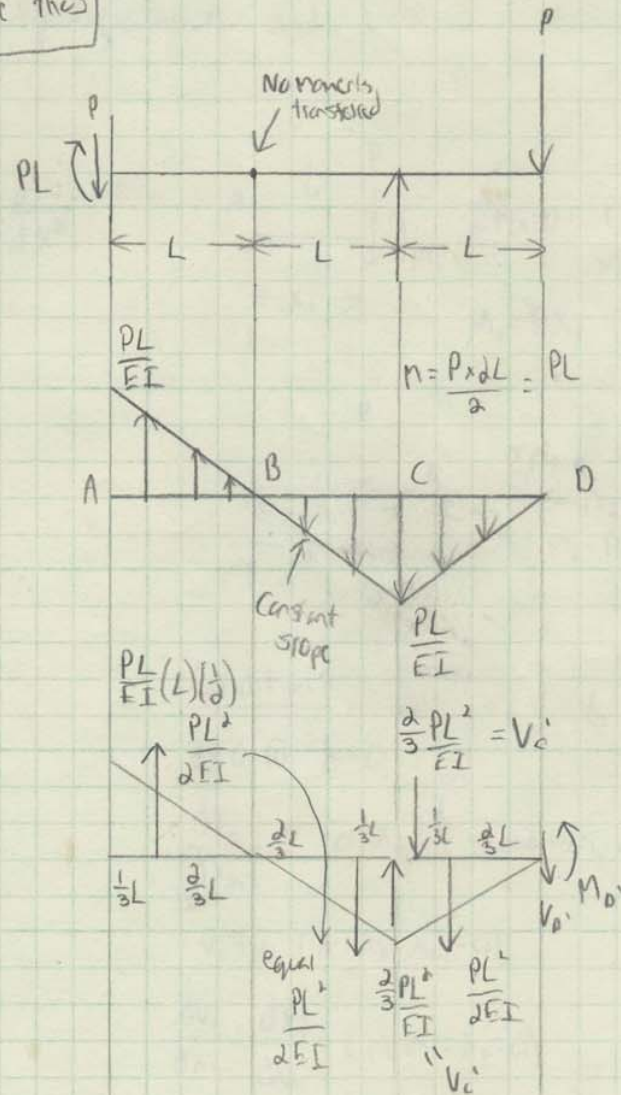 P
No moments
transferred
P
PL
L
L
L
PL/EI
M = P x 2L / 2 = PL
A
B
C
D
Constant
slope
PL/EI
PL/EI (L) (1/2)
PL²/2EI
2/3 PL²/EI = Vc'
1/3L
2/3L
2/3L
1/3L
1/3L
2/3L
VD'
MD'
equal
PL²/2EI
2/3 PL²/EI
"
Vc'
PL²/2EI